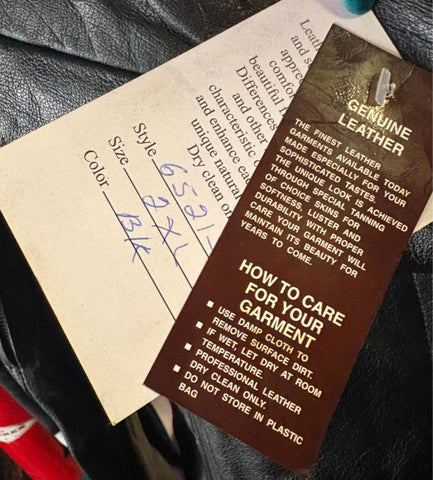 Leath
and s
appre
comfo
beautiful
Differences
and other
characteristic
and enhance ea
unique natura
Dry clean on
Style 6521-
Size 2XL
Color Blk
GENUINE
LEATHER
THE FINEST LEATHER
GARMENTS AVAILABLE TODAY
MADE ESPECIALLY FOR YOUR
SOPHISTICATED TASTES.
THE UNIQUE LOOK IS ACHIEVED
THROUGH SPECIAL TANNING
OF CHOICE SKINS FOR
SOFTNESS, LUSTER AND
DURABILITY WITH PROPER
CARE YOUR GARMENT WILL
MAINTAIN ITS BEAUTY FOR
YEARS TO COME.
HOW TO CARE
FOR YOUR
GARMENT
▪ USE DAMP CLOTH TO
REMOVE SURFACE DIRT.
▪ IF WET, LET DRY AT ROOM
TEMPERATURE.
▪ PROFESSIONAL LEATHER
DRY CLEAN ONLY.
▪ DO NOT STORE IN PLASTIC
BAG